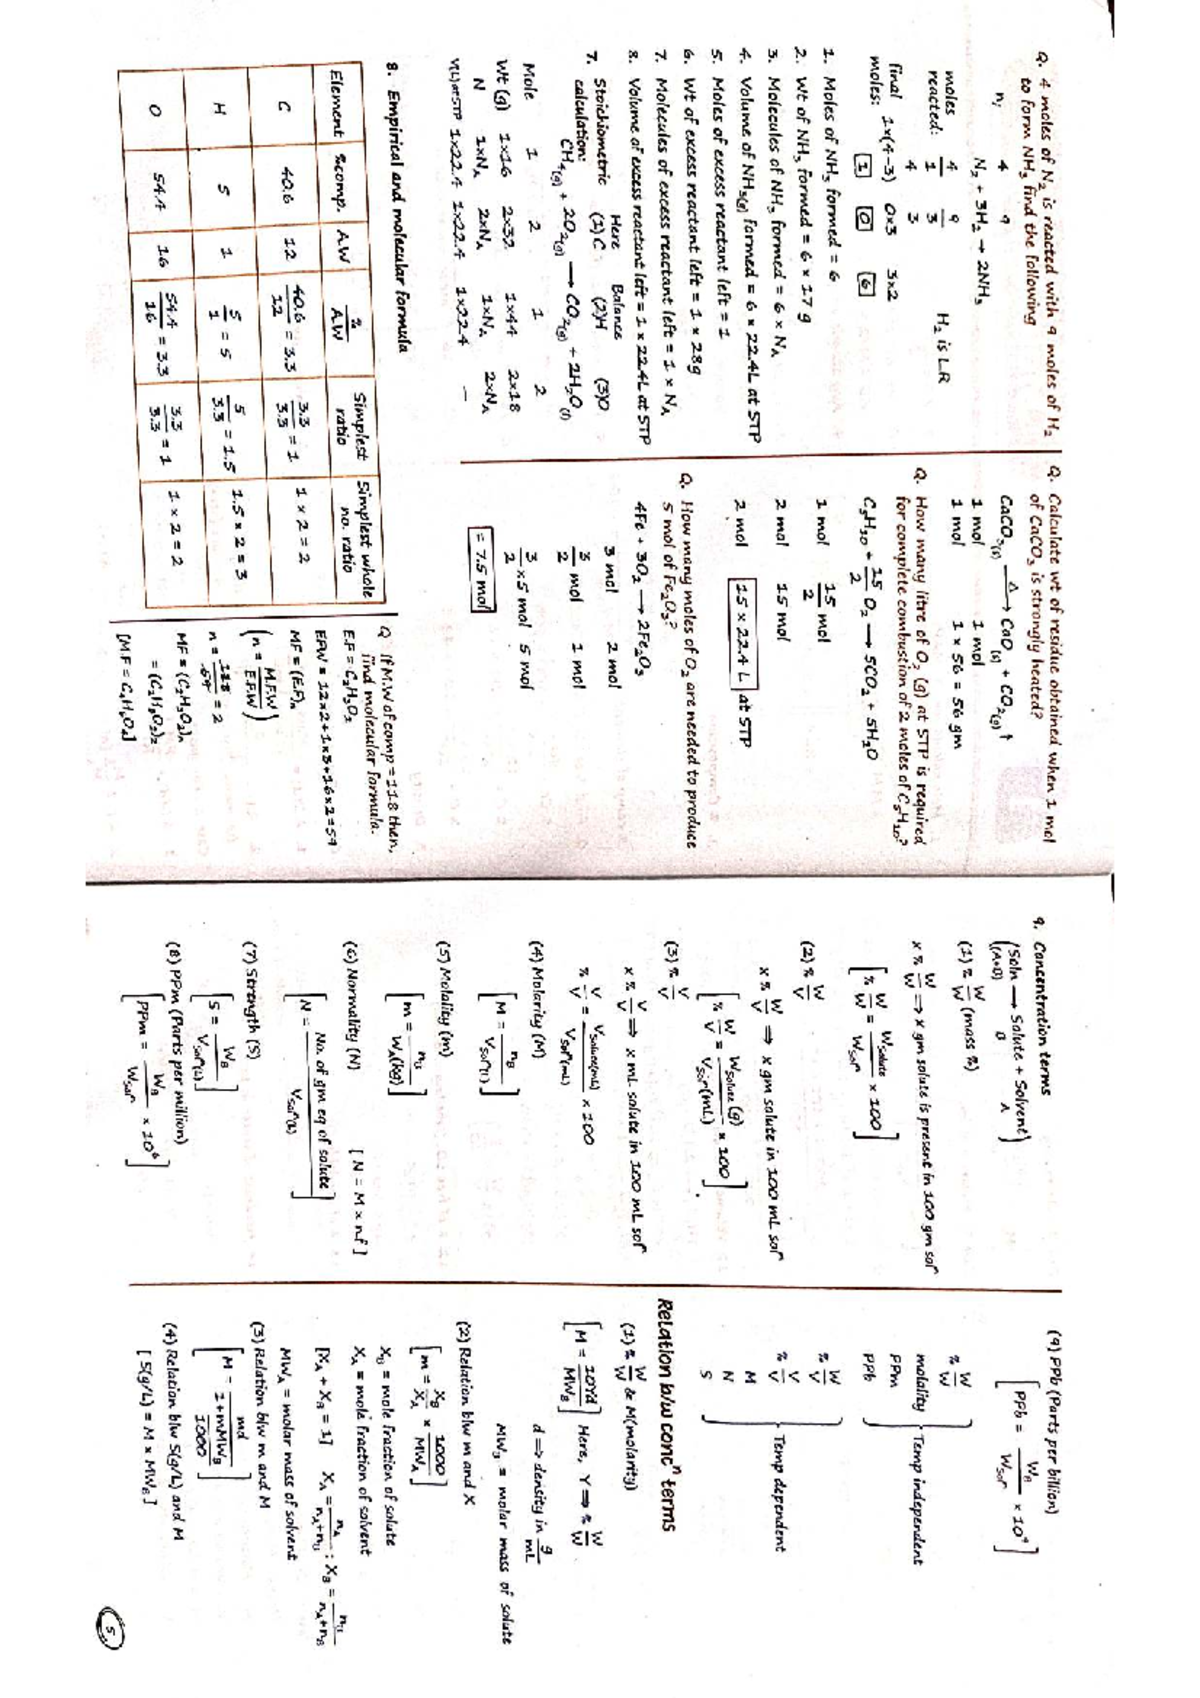 Q. 4 moles of N₂ is reacted with 9 moles of H₂
to form NH₃ find the following
nᵢ 4 9
N₂ + 3H₂ → 2NH₃
moles reacted: 4/1 9/3 H₂ is LR
4 3
final moles: 1×(4-3) 0×3 3×2
[1] [0] [6]
1. Moles of NH₃ formed = 6
2. Wt of NH₃ formed = 6 × 17 g
3. Molecules of NH₃ formed = 6 × N_A
4. Volume of NH₃(g) formed = 6 × 22.4L at STP
5. Moles of excess reactant left = 1
6. Wt of excess reactant left = 1 × 28g
7. Molecules of excess reactant left = 1 × N_A
8. Volume of excess reactant left = 1 × 22.4L at STP
7. Stoichiometric Here Balance
calculation: (1)C (2)H (3)O
CH₄(g) + 2O₂(g) → CO₂(g) + 2H₂O(l)
Mole 1 2 1 2
Wt (g) 1×16 2×32 1×44 2×18
N 1×N_A 2×N_A 1×N_A 2×N_A
V(L) at STP 1×22.4 1×22.4 1×22.4 —
8. Empirical and molecular formula
Element %comp. A.W %/A.W Simplest ratio Simplest whole no. ratio
C 40.6 12 40.6/12 = 3.3 3.3/3.3 = 1 1 × 2 = 2
H 5 1 5/1 = 5 5/3.3 = 1.5 1.5 × 2 = 3
O 54.4 16 54.4/16 = 3.3 3.3/3.3 = 1 1 × 2 = 2
Q. Calculate wt of residue obtained when 1 mol
of CaCO₃ is strongly heated?
CaCO₃(s) —Δ→ CaO(s) + CO₂(g)↑
1 mol 1 mol
1 mol 1 × 56 = 56 gm
Q. How many litre of O₂(g) at STP is required
for complete combustion of 2 moles of C₅H₁₀?
C₅H₁₀ + 15/2 O₂ → 5CO₂ + 5H₂O
1 mol 15/2 mol
2 mol 15 mol
2 mol [15 × 22.4 L] at STP
Q. How many moles of O₂ are needed to produce
5 mol of Fe₂O₃?
4Fe + 3O₂ → 2Fe₂O₃
3 mol 2 mol
3/2 mol 1 mol
3/2 ×5 mol 5 mol
[= 7.5 mol]
Q If M.W of comp = 118 then,
find molecular formula.
E.F = C₂H₃O₂
EFW = 12×2+1×3+16×2=59
MF = (E.F)ₙ
(n = M.F.W/E.F.W)
n = 118/59 = 2
MF = (C₂H₃O₂)ₙ
= (C₂H₃O₂)₂
[MF = C₄H₆O₄]
9. Concentration terms
(Solⁿ → Solute + Solvent)
(A+B) B A
(1) % W/W (mass %)
x % W/W ⇒ x gm solute is present in 100 gm solⁿ
[% W/W = W_solute/W_solⁿ × 100]
(2) % W/V
x % W/V ⇒ x gm solute in 100 mL solⁿ
[% W/V = W_solute (g)/V_solⁿ(mL) × 100]
(3) % V/V
x % V/V ⇒ x mL solute in 100 mL solⁿ
% V/V = V_solute(mL)/V_solⁿ(mL) × 100
(4) Molarity (M)
[M = n_B/V_solⁿ(L)]
(5) Molality (m)
[m = n_B/W_A(kg)]
(6) Normality (N) [N = M × nf]
[N = No. of gm eq of solute/V_solⁿ(L)]
(7) Strength (S)
[S = W_B/V_solⁿ(L)]
(8) PPm (Parts per million)
[PPm = W_B/W_solⁿ × 10⁶]
(9) PPb (Parts per billion)
[PPb = W_B/W_solⁿ × 10⁹]
% W/W
molality } Temp independent
PPm
PPb
% W/V
% V/V
M } Temp dependent
N
S
Relation b/w concⁿ terms
(1) % W/W & M(molarity)
[M = 10Yd/MW_B] Here, Y ⇒ % W/W
d ⇒ density in g/mL
MW_B = molar mass of solute
(2) Relation b/w m and X
[m = X_B/X_A × 1000/MW_A]
X_B = mole fraction of solute
X_A = mole fraction of solvent
[X_A + X_B = 1] X_A = n_A/(n_A+n_B) ; X_B = n_B/(n_A+n_B)
MW_A = molar mass of solvent
(3) Relation b/w m and M
[M = md/(1+mMW_B/1000)]
(4) Relation b/w S(g/L) and M
[S(g/L) = M × MW_B]
5